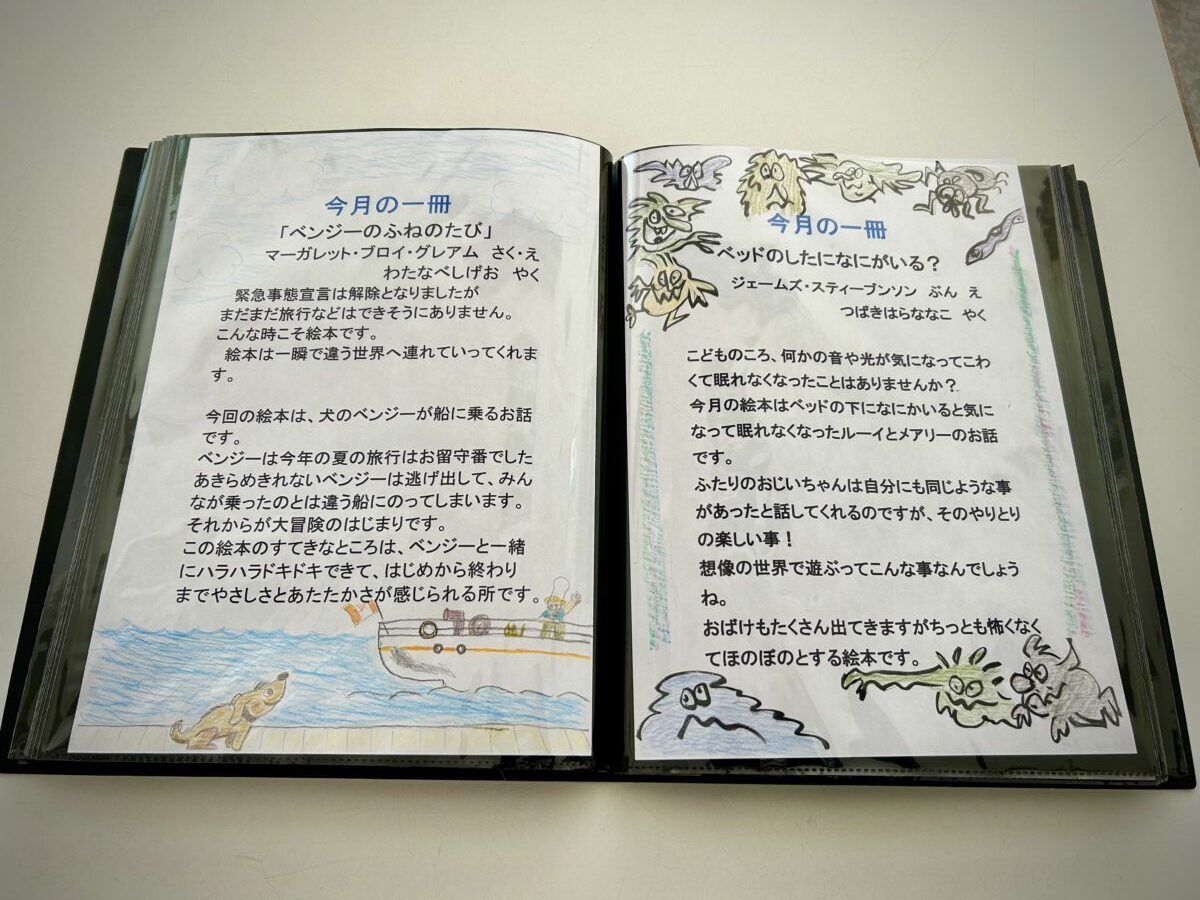 今月の一冊
「ベンジーのふねのたび」
マーガレット・ブロイ・グレアム さく・え
わたなべしげお やく
緊急事態宣言は解除となりましたが
まだまだ旅行などはできそうにありません。
こんな時こそ絵本です。
絵本は一瞬で違う世界へ連れていってくれま
す。
今回の絵本は、犬のベンジーが船に乗るお話
です。
ベンジーは今年の夏の旅行はお留守番でした
あきらめきれないベンジーは逃げ出して、みん
なが乗ったのとは違う船にのってしまいます。
それからが大冒険のはじまりです。
この絵本のすてきなところは、ベンジーと一緒
にハラハラドキドキできて、はじめから終わり
までやさしさとあたたかさが感じられる所です。
今月の一冊
ベッドのしたになにがいる？
ジェームズ・スティーブンソン ぶん え
つばきはらななこ やく
こどものころ、何かの音や光が気になってこわ
くて眠れなくなったことはありませんか？
今月の絵本はベッドの下になにかいると気に
なって眠れなくなったルーイとメアリーのお話
です。
ふたりのおじいちゃんは自分にも同じような事
があったと話してくれるのですが、そのやりとり
の楽しい事！
想像の世界で遊ぶってこんな事なんでしょう
ね。
おばけもたくさん出てきますがちっとも怖くなく
てほのぼのとする絵本です。